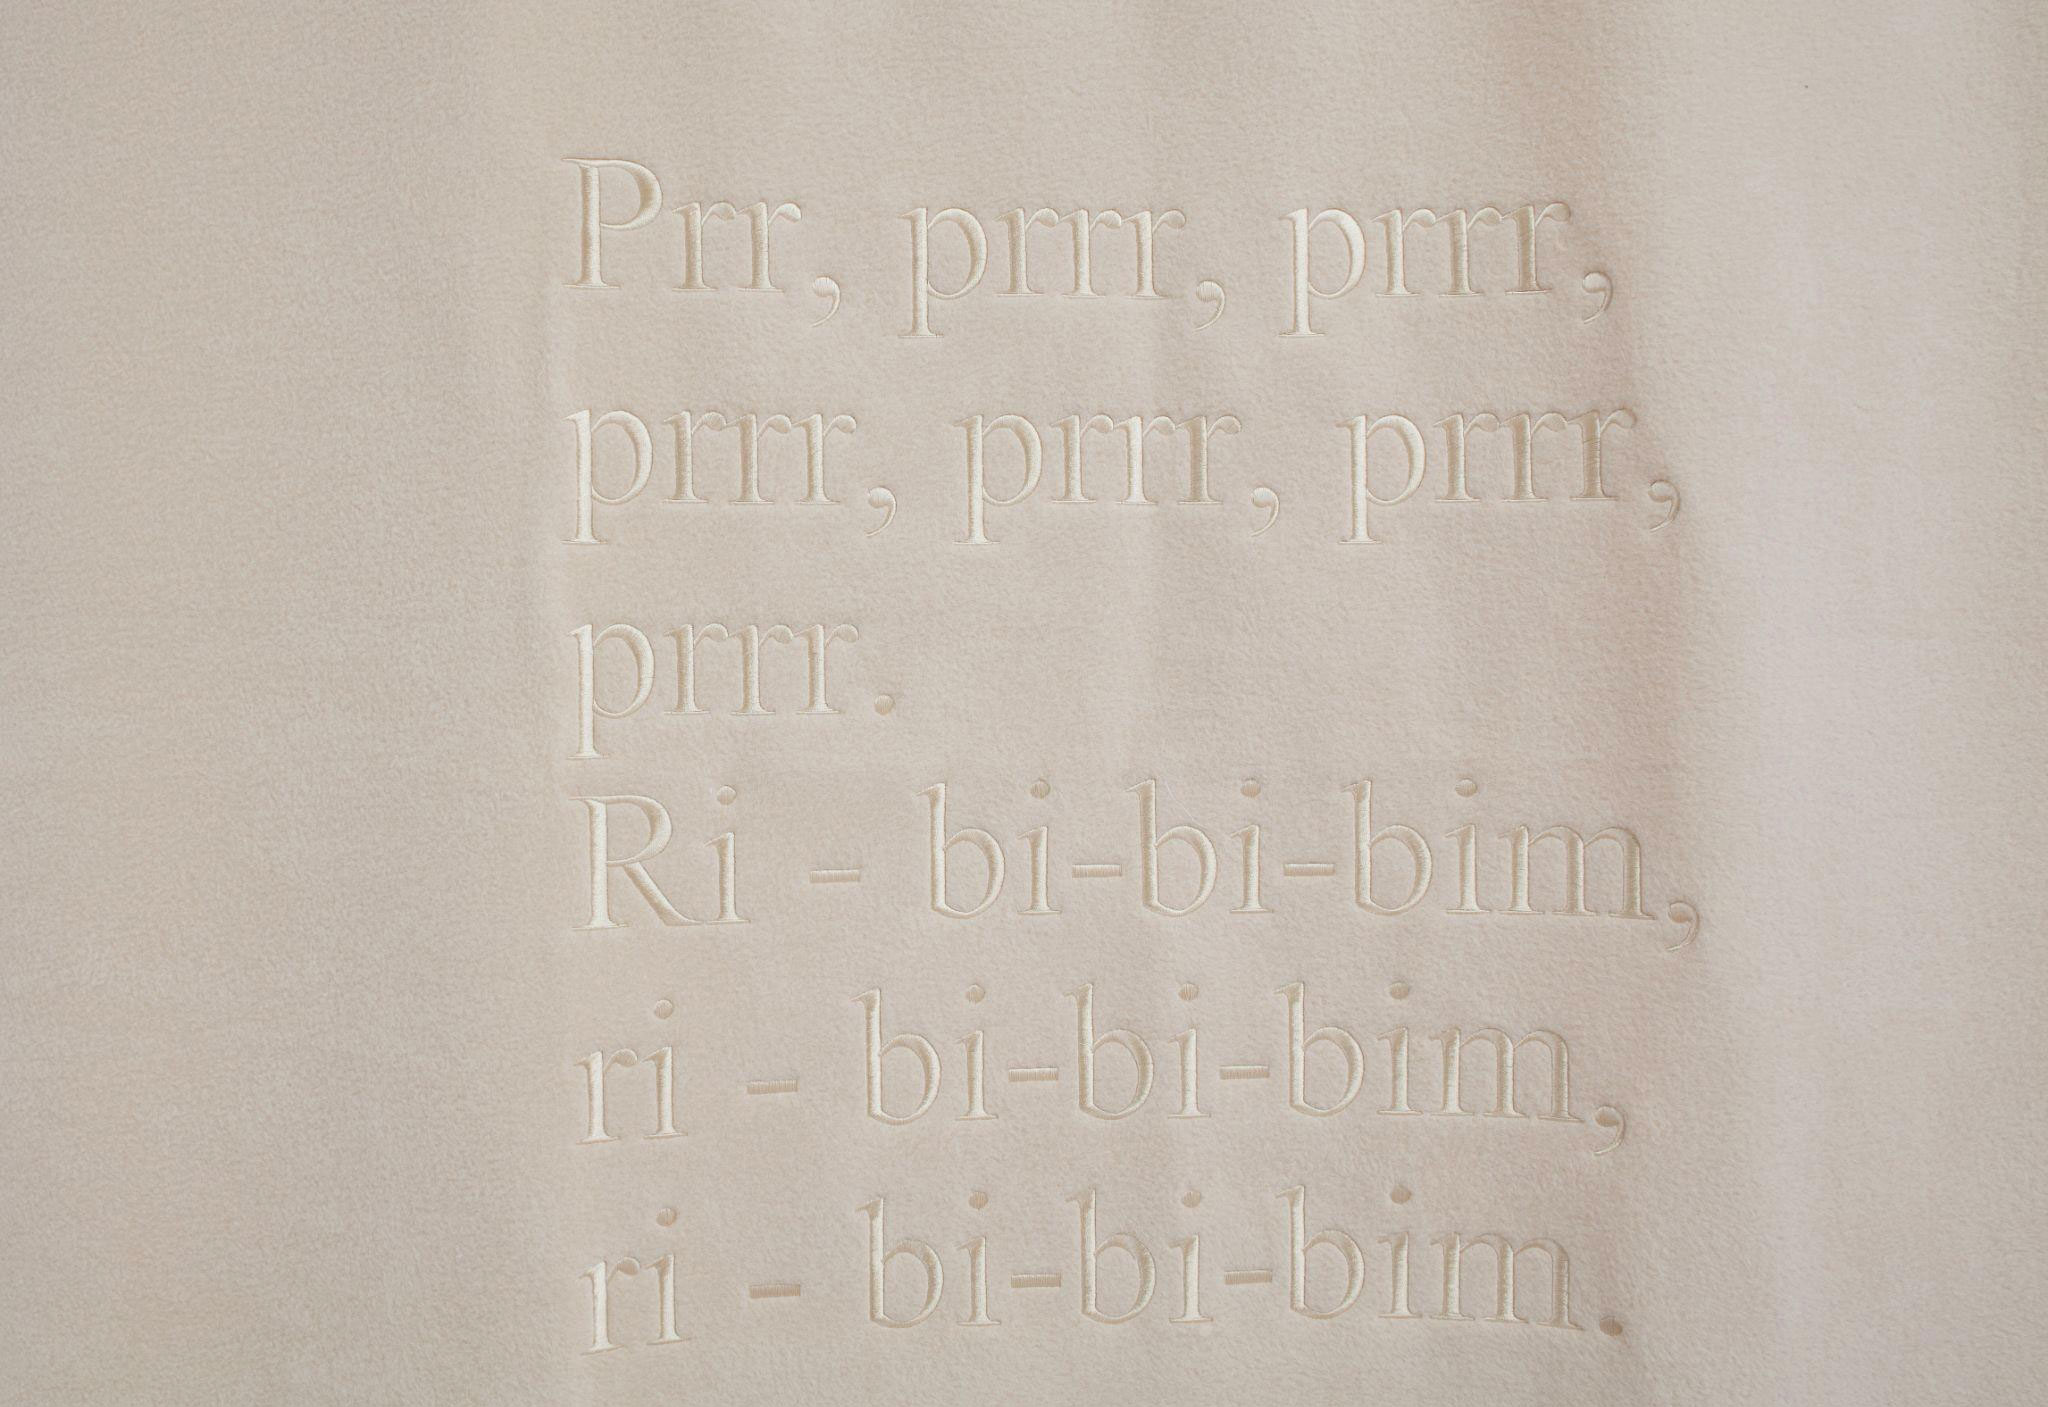 Prr, prrr, prrr,
prrr, prrr, prrr,
prrr.
Ri - bi-bi-bim,
ri - bi-bi-bim,
ri - bi-bi-bim.